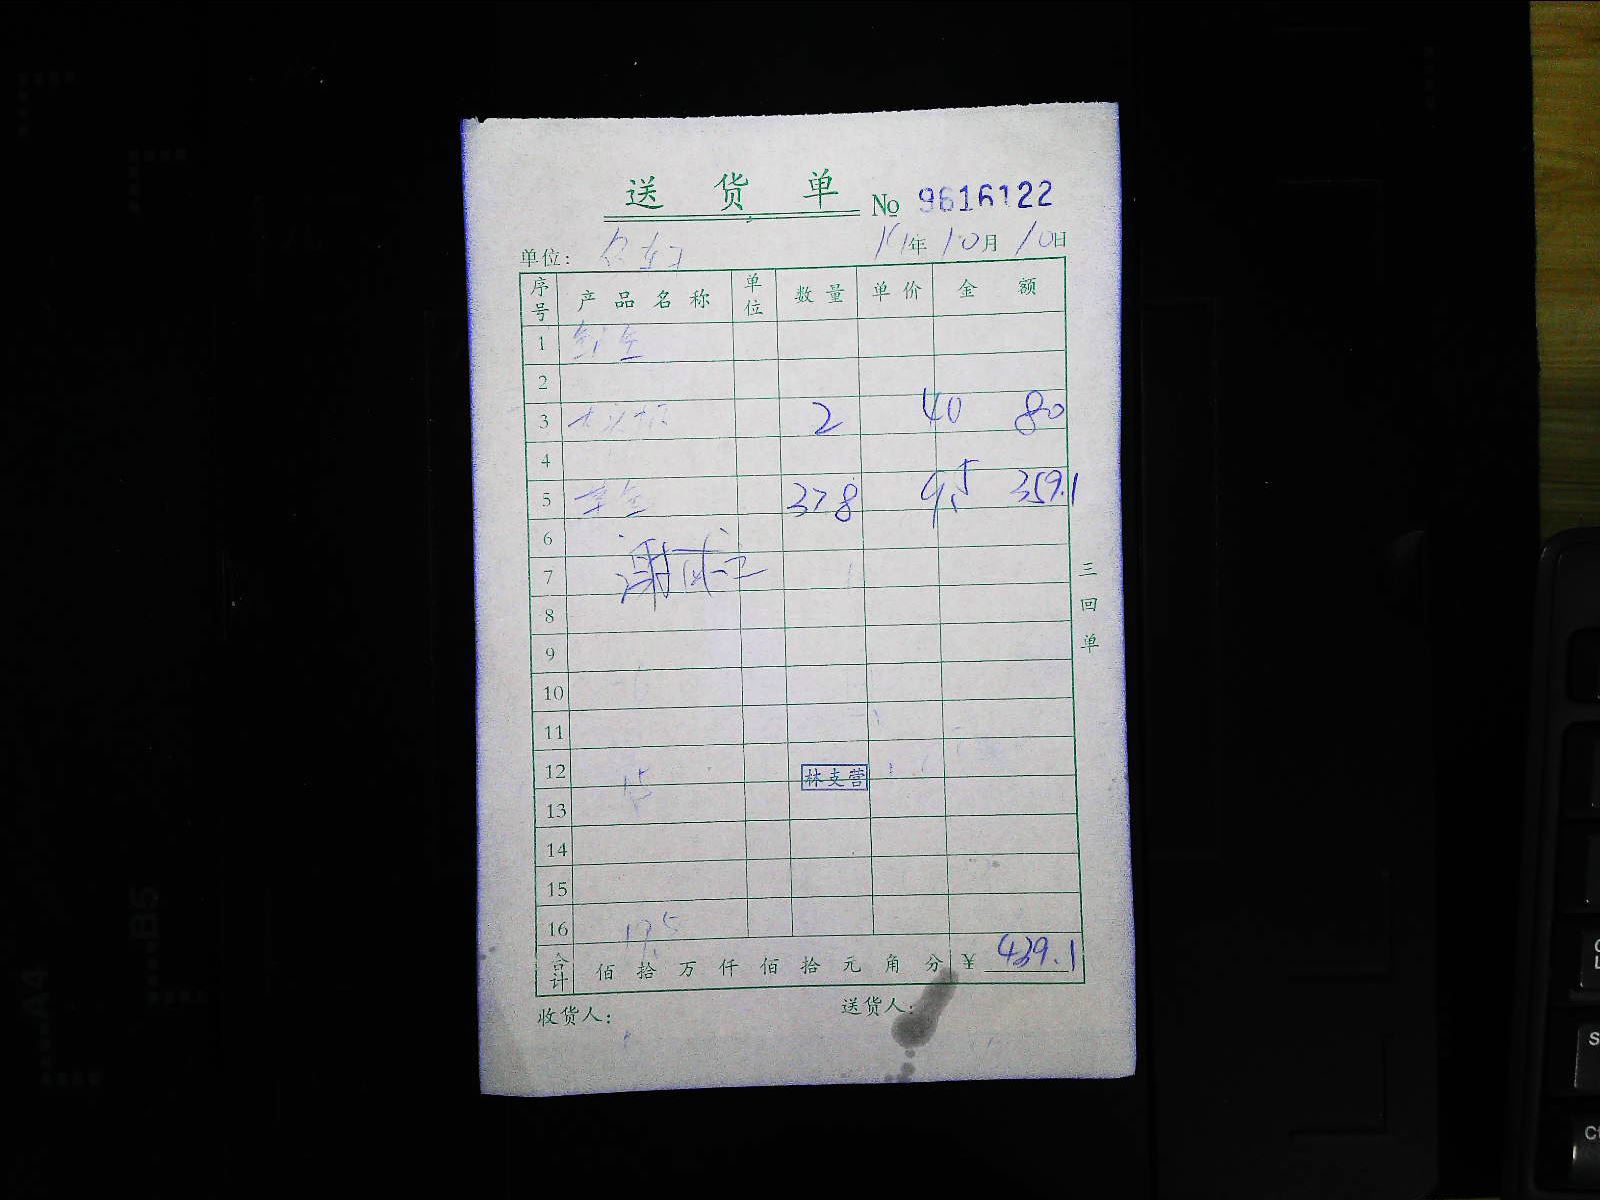 送 货 单 № 9616122
单位: 19年 10月 10日
序号 产品名称 单位 数量 单价 金额
1
2
3 2 40 80
4
5 草鱼 378 9.5 359.1
6
7
8
9
10
11
12 林支营
13
14
15
16
合计 佰 拾 万 仟 佰 拾 元 角 分 ¥ 439.1
收货人: 送货人:
三回单
B5
A4